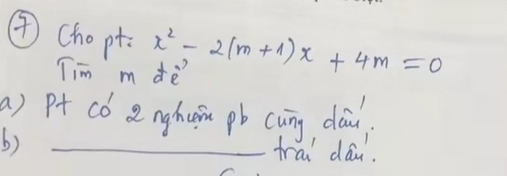 ⑦ Cho pt: x² - 2(m+1)x + 4m = 0
Tìm m để
a) Pt có 2 nghiệm pb cùng dấu.
b) ____________ trái dấu.